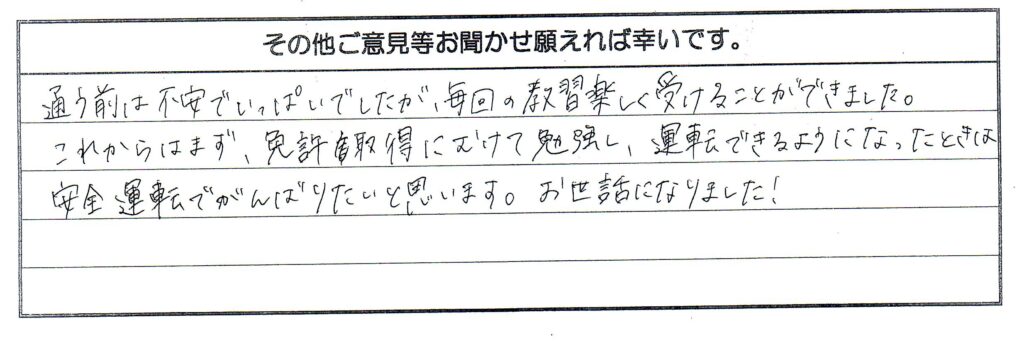 その他ご意見等お聞かせ願えれば幸いです。
通う前は不安でいっぱいでしたが、毎回の教習楽しく受けることができました。
これからはまず、免許取得にむけて勉強し、運転できるようになったときは
安全運転でがんばりたいと思います。お世話になりました!